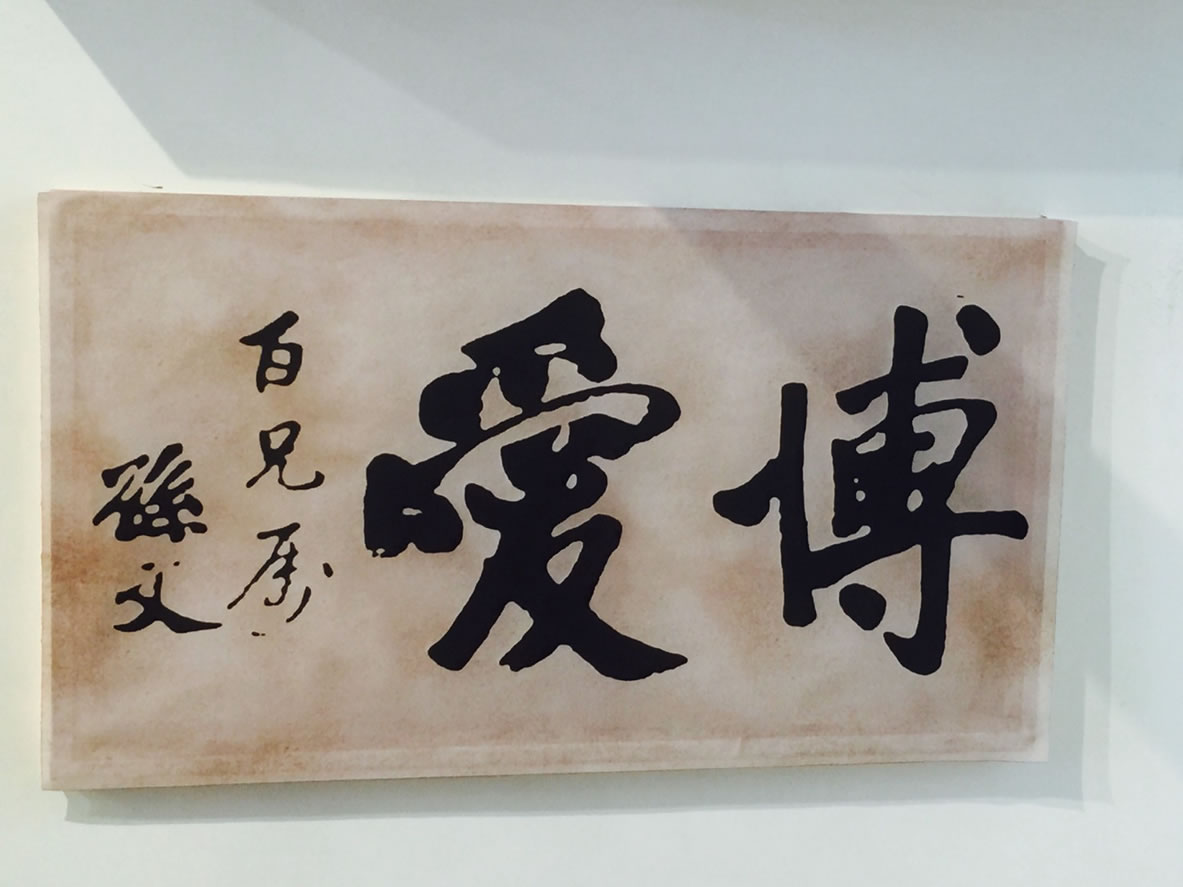 博愛
百兄属
孫文